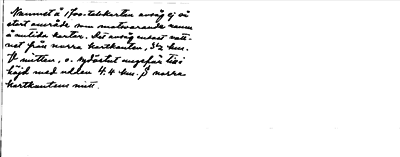 Namnet å 1700-talskartan avsåg ej så
stort område som motsvarande namn
å nutida kartor. Det avsåg endast vatt-
net från norra kartkanten, 3½ km.
V mitten, o. sydöstut ungefär till
höjd med udden 4.4 km. S norra
kartkantens mitt.